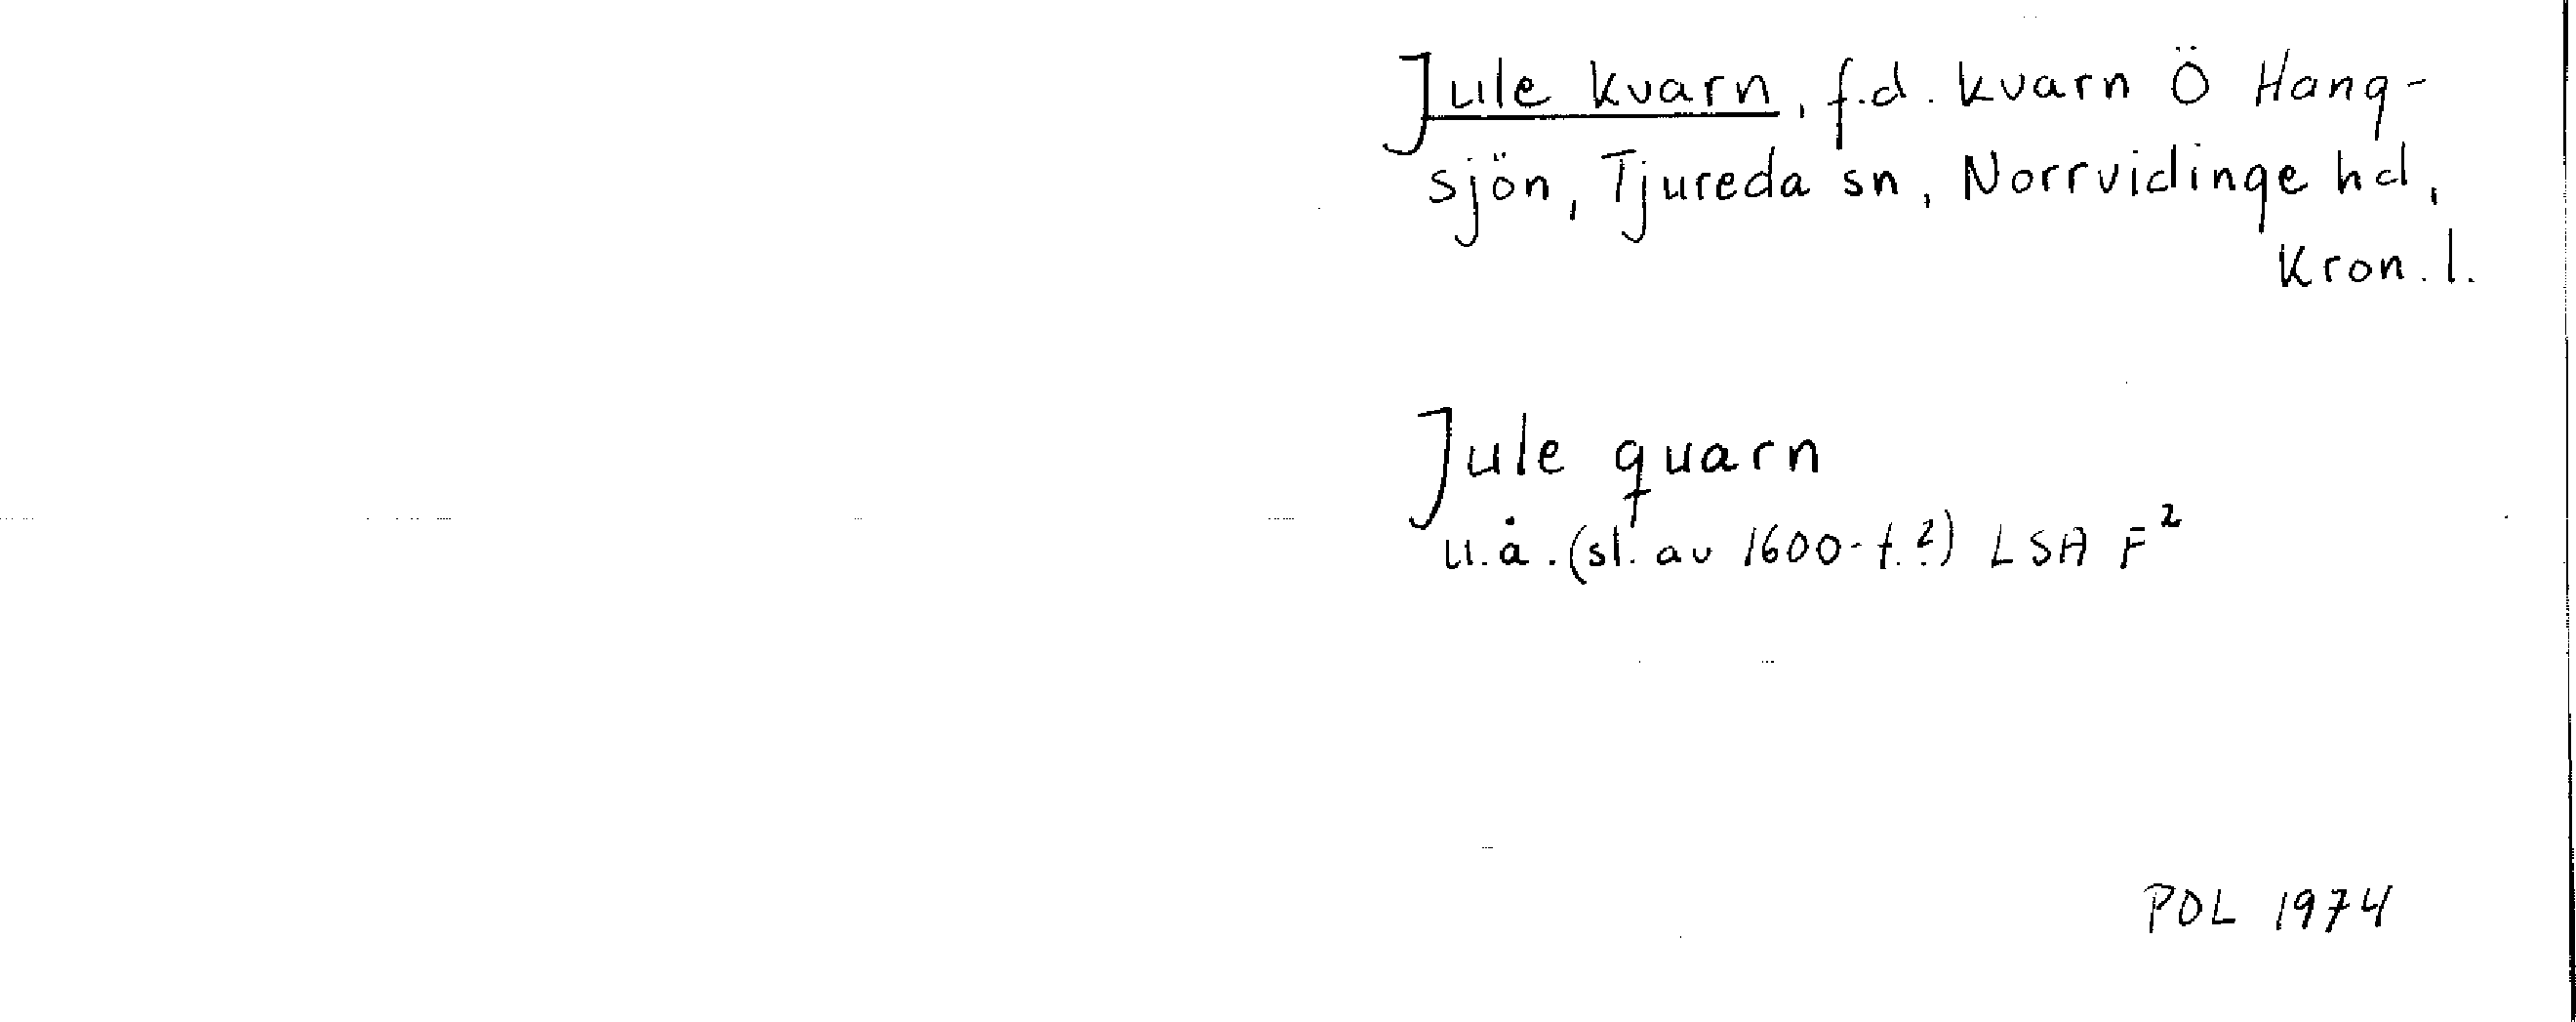 Jule kvarn, f.d. kvarn Ö Hang-
sjön, Tjureda sn, Norrvidinge hd,
Kron. l.
Jule quarn
u.å. (sl. av 1600-t.?) LSA F²
POL 1974